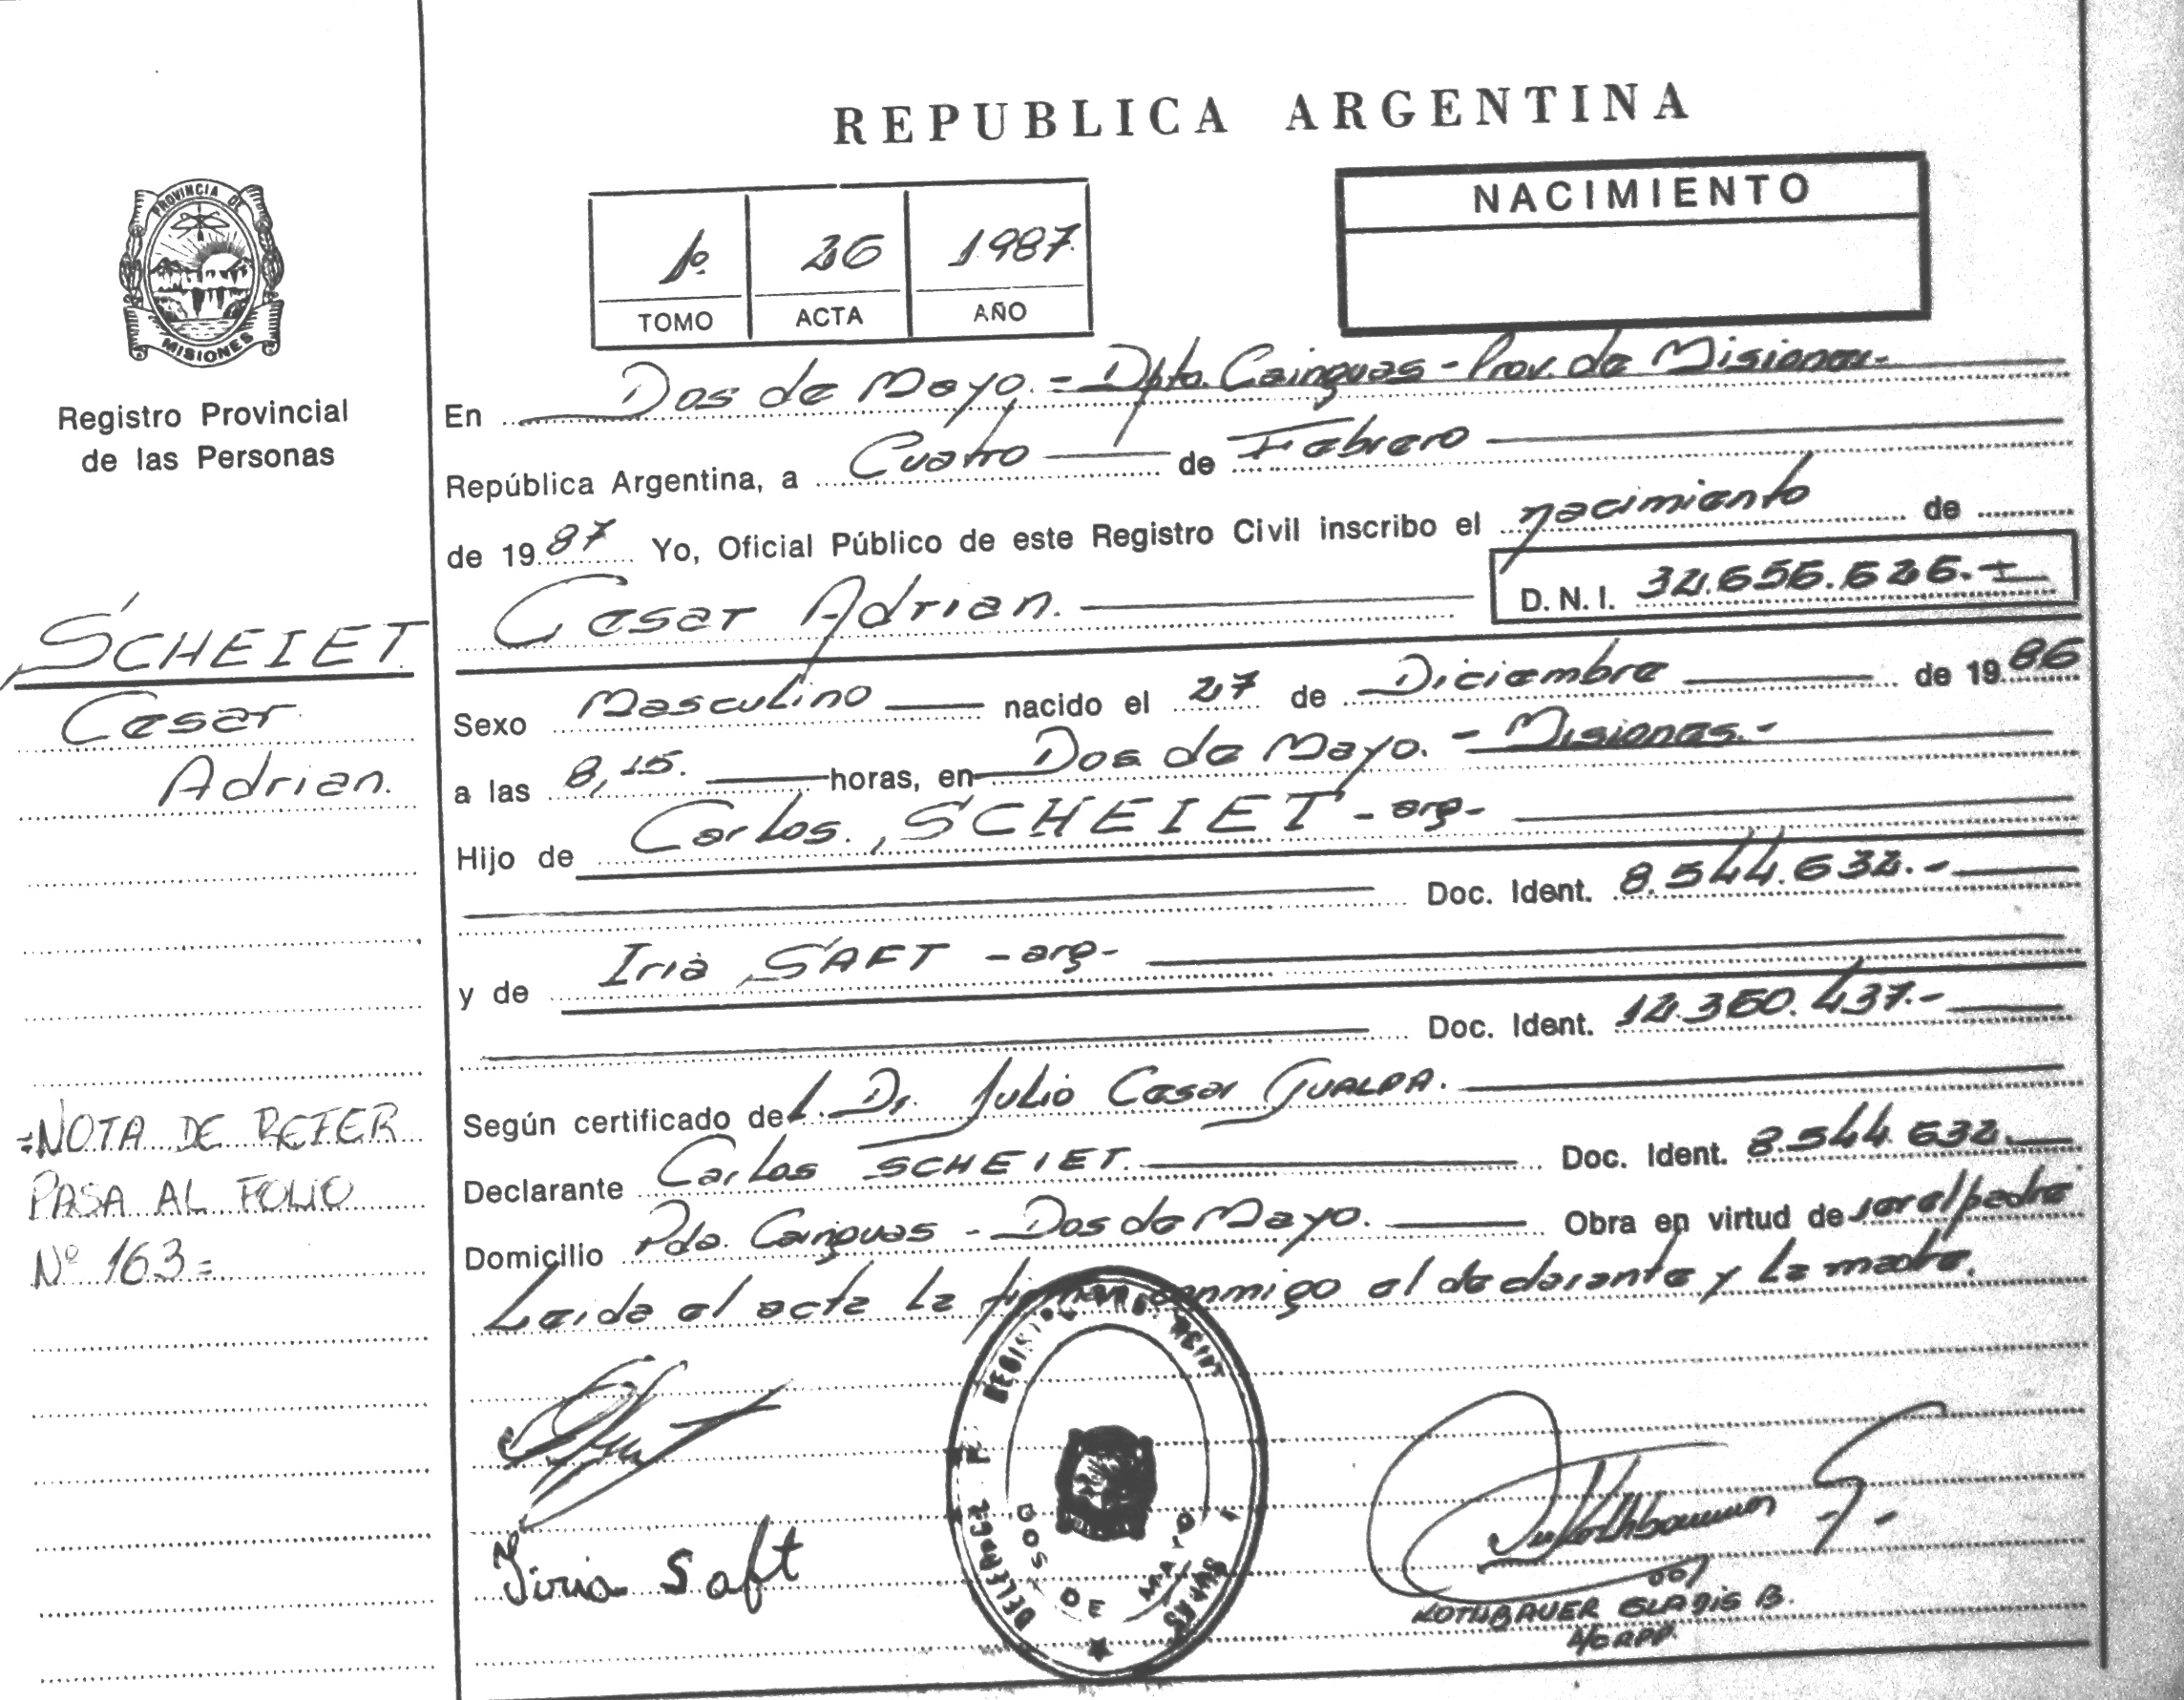 REPUBLICA ARGENTINA
PROVINCIA DE
MISIONES
Registro Provincial
de las Personas
1º 26 1987
TOMO ACTA AÑO
NACIMIENTO
En Dos de Mayo.- Dpto. Cainguas - Prov. de Misiones.-
República Argentina, a Cuatro de Febrero
de 1987 Yo, Oficial Público de este Registro Civil inscribo el nacimiento de
Cesar Adrian. D.N.I. 32.656.626.-
SCHEIET
Cesar
Adrian.
Sexo Masculino nacido el 27 de Diciembre de 1986
a las 8,15. horas, en Dos de Mayo. - Misiones.-
Hijo de Carlos, SCHEIET - arg-
Doc. Ident. 8.544.632.-
y de Iria SAFT - arg-
Doc. Ident. 12.360.437.-
Según certificado del Dr. Julio Cesar GUALDA.
Declarante Carlos SCHEIET. Doc. Ident. 8.544.632.
Domicilio Pdo. Cainguas - Dos de Mayo. Obra en virtud de ser el padre
Leida el acta la firman conmigo el declarante y la madre.
=NOTA DE REFER
PASA AL FOLIO
Nº 163=
Iiria Saft
DOS DE MAYO
ROTHBAUER GLADIS B.